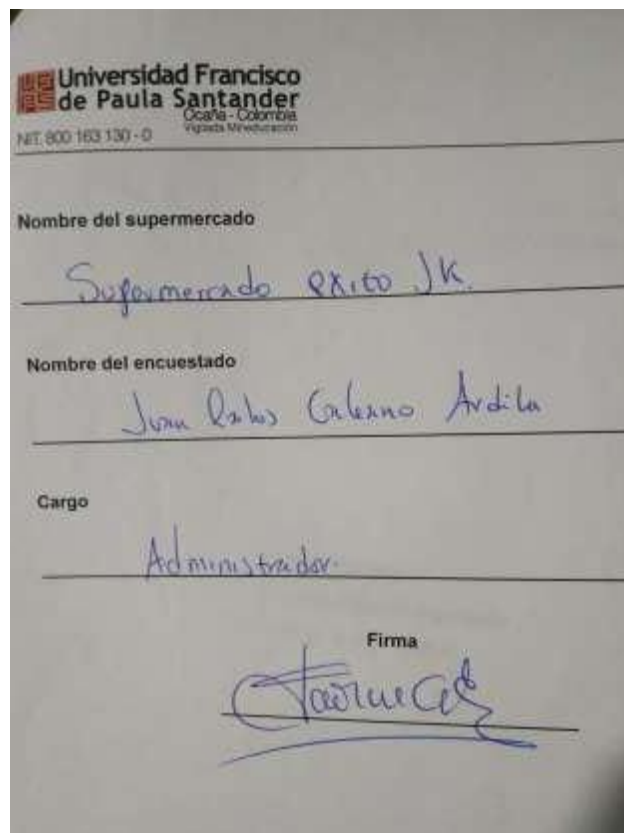 Universidad Francisco
de Paula Santander
Ocaña - Colombia
Vigilada Mineducación
NIT. 800 163 130 - 0
Nombre del supermercado
Supermercado exito JK.
Nombre del encuestado
Juan Ardila
Cargo
Administrador.
Firma